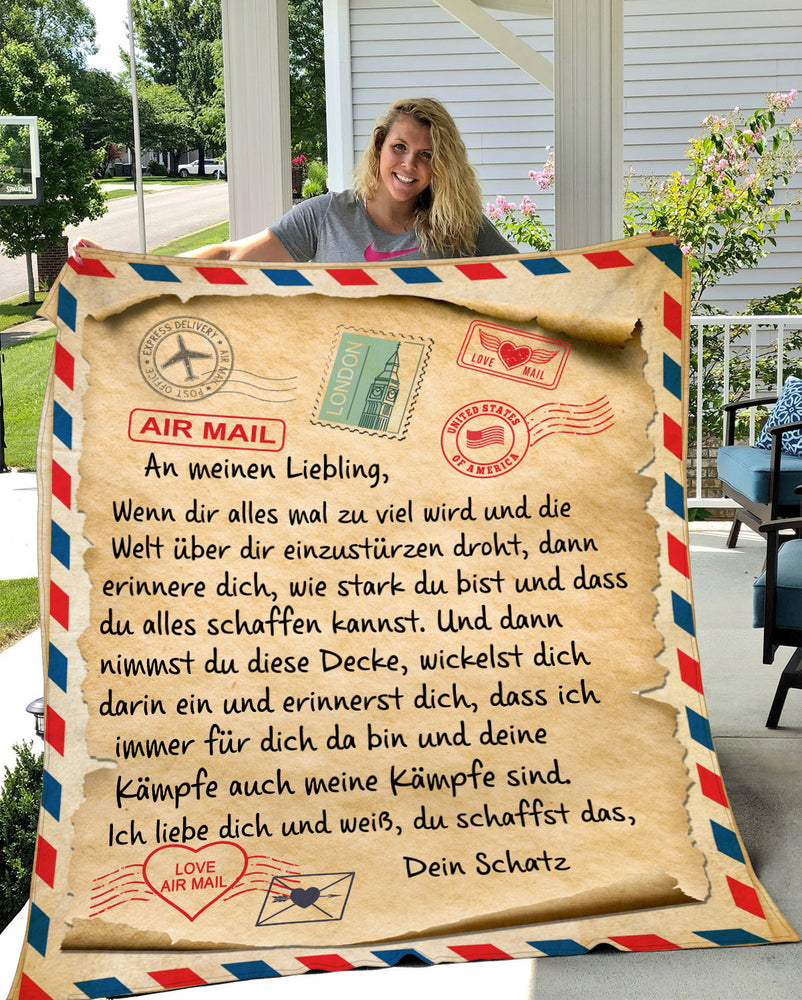 SPALDING
EXPRESS DELIVERY
AIR MAIL
POST OFFICE
LONDON
LOVE MAIL
AIR MAIL
UNITED STATES
OF AMERICA
An meinen Liebling,
Wenn dir alles mal zu viel wird und die
Welt über dir einzustürzen droht, dann
erinnere dich, wie stark du bist und dass
du alles schaffen kannst. Und dann
nimmst du diese Decke, wickelst dich
darin ein und erinnerst dich, dass ich
immer für dich da bin und deine
Kämpfe auch meine Kämpfe sind.
Ich liebe dich und weiß, du schaffst das,
Dein Schatz
LOVE
AIR MAIL